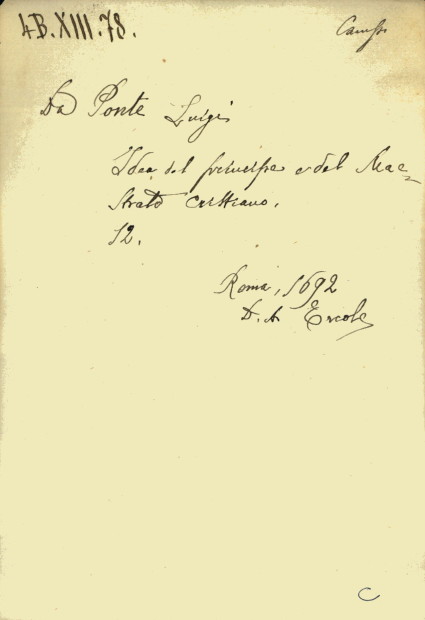 4B.XIII.78.
Camp
Da Ponte Luigi
Idea del principe e del Mae-
strato cristiano.
12.
Roma, 1692
D. A. Ercole
C